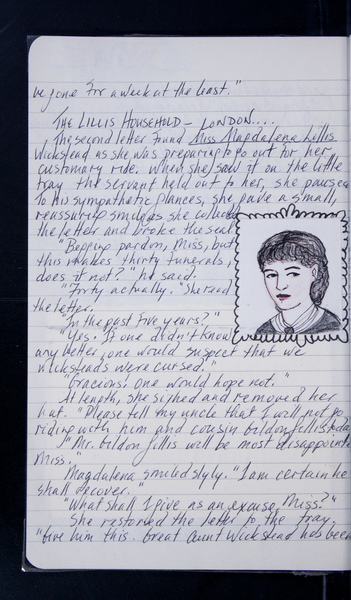 be gone for a week at the least."
THE LILLIS HOUSEHOLD – LONDON....
The second letter found Miss Magdalena Lillis
Wickstead as she was preparing to go out for her
customary ride. When she saw it on the little
tray the servant held out to her, she paused
To his sympathetic glances, she gave a small,
reassuring smile as she
the letter and broke the seal
"Beggin pardon, Miss, but
this makes thirty funerals,
does it not?" he said.
"Forty actually." She read
the letter.
"In the past five years?"
"Yes. If one didn't know
any better, one would suspect that we
Wicksteads were cursed."
"Gracious! One would hope not."
At length, she sighed and removed her
hat. "Please tell my uncle that I will not go
riding with him and cousin Gildon Lillis
"Mr. Gildon Lillis will be most disappointed
Miss."
Magdalena smiled slyly. "I am certain he
shall recover."
"What shall I give as an excuse, Miss?"
She restored the letter to the tray.
"Give him this. Great Aunt Wickstead has been